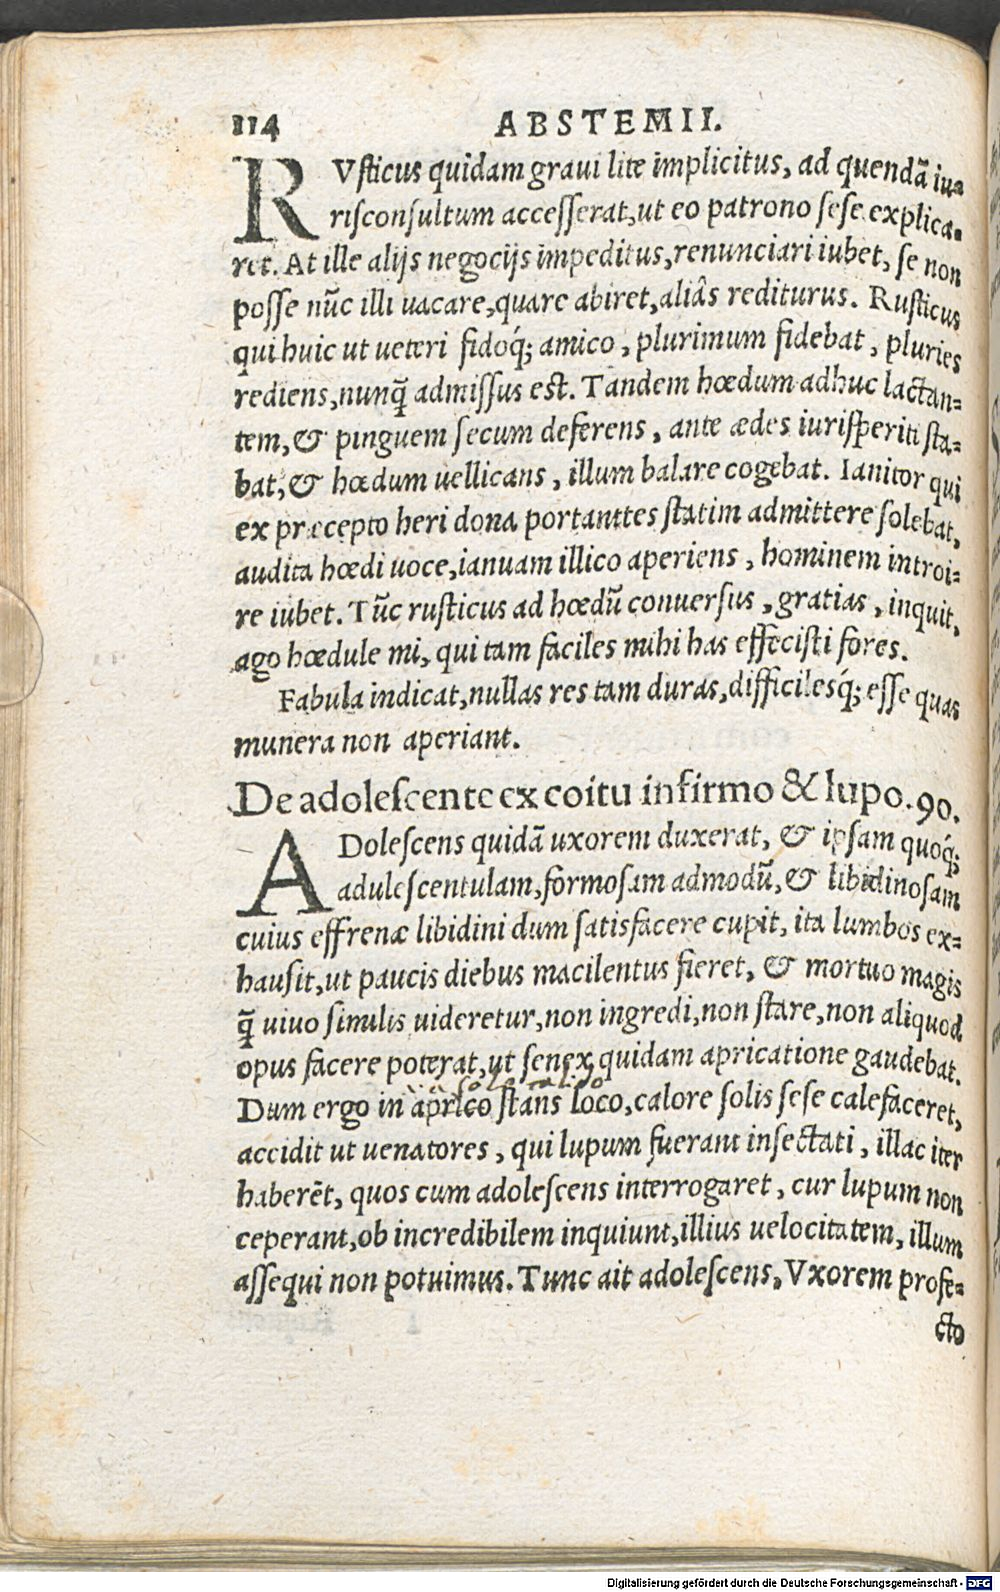 114 ABSTEMII.
RVſticus quidam graui lite implicitus, ad quendā iu-
riſconſultum acceſſerat,ut eo patrono ſeſe explica-
ret. At ille alijs negocijs impeditus,renunciari iubet, ſe non
poſſe nūc illi uacare,quare abiret,aliâs rediturus. Ruſticus
qui huic ut ueteri fidoq́; amico, plurimum fidebat, pluries
rediens,nunq̄ admiſſus eſt. Tandem hœdum adhuc lactan-
tem,& pinguem ſecum deferens, ante ædes iuriſperiti ſta-
bat,& hœdum uellicans, illum balare cogebat. Ianitor qui
ex præcepto heri dona portantes ſtatim admittere ſolebat,
audita hœdi uoce,ianuam illico aperiens, hominem introi-
re iubet. Tūc ruſticus ad hœdū conuerſus, gratias, inquit,
ago hœdule mi, qui tam faciles mihi has effeciſti fores.
Fabula indicat,nullas res tam duras,difficilesq́; eſſe quas
munera non aperiant.
De adoleſcente ex coitu infirmo & lupo.90.
ADoleſcens quidā uxorem duxerat, & ipſam quoq́;
aduleſcentulam,formoſam admodū,& libidinoſam
cuius effrenæ libidini dum satisfacere cupit, ita lumbos ex-
hauſit,ut paucis diebus macilentus fieret, & mortuo magis
q̄ uiuo ſimilis uideretur,non ingredi,non ſtare,non aliquod
opus facere poterat,ut ſenex quidam apricatione gaudebat.
ſole calido
Dum ergo in aprico ſtans loco,calore ſolis ſeſe calefaceret,
accidit ut uenatores, qui lupum fuerant inſectati, illac iter
haberēt, quos cum adoleſcens interrogaret, cur lupum non
ceperant,ob incredibilem inquiunt,illius uelocitatem, illum
aſſequi non potuimus. Tunc ait adoleſcens, Vxorem profe-
cto
Digitalisierung gefördert durch die Deutsche Forschungsgemeinschaft - DFG